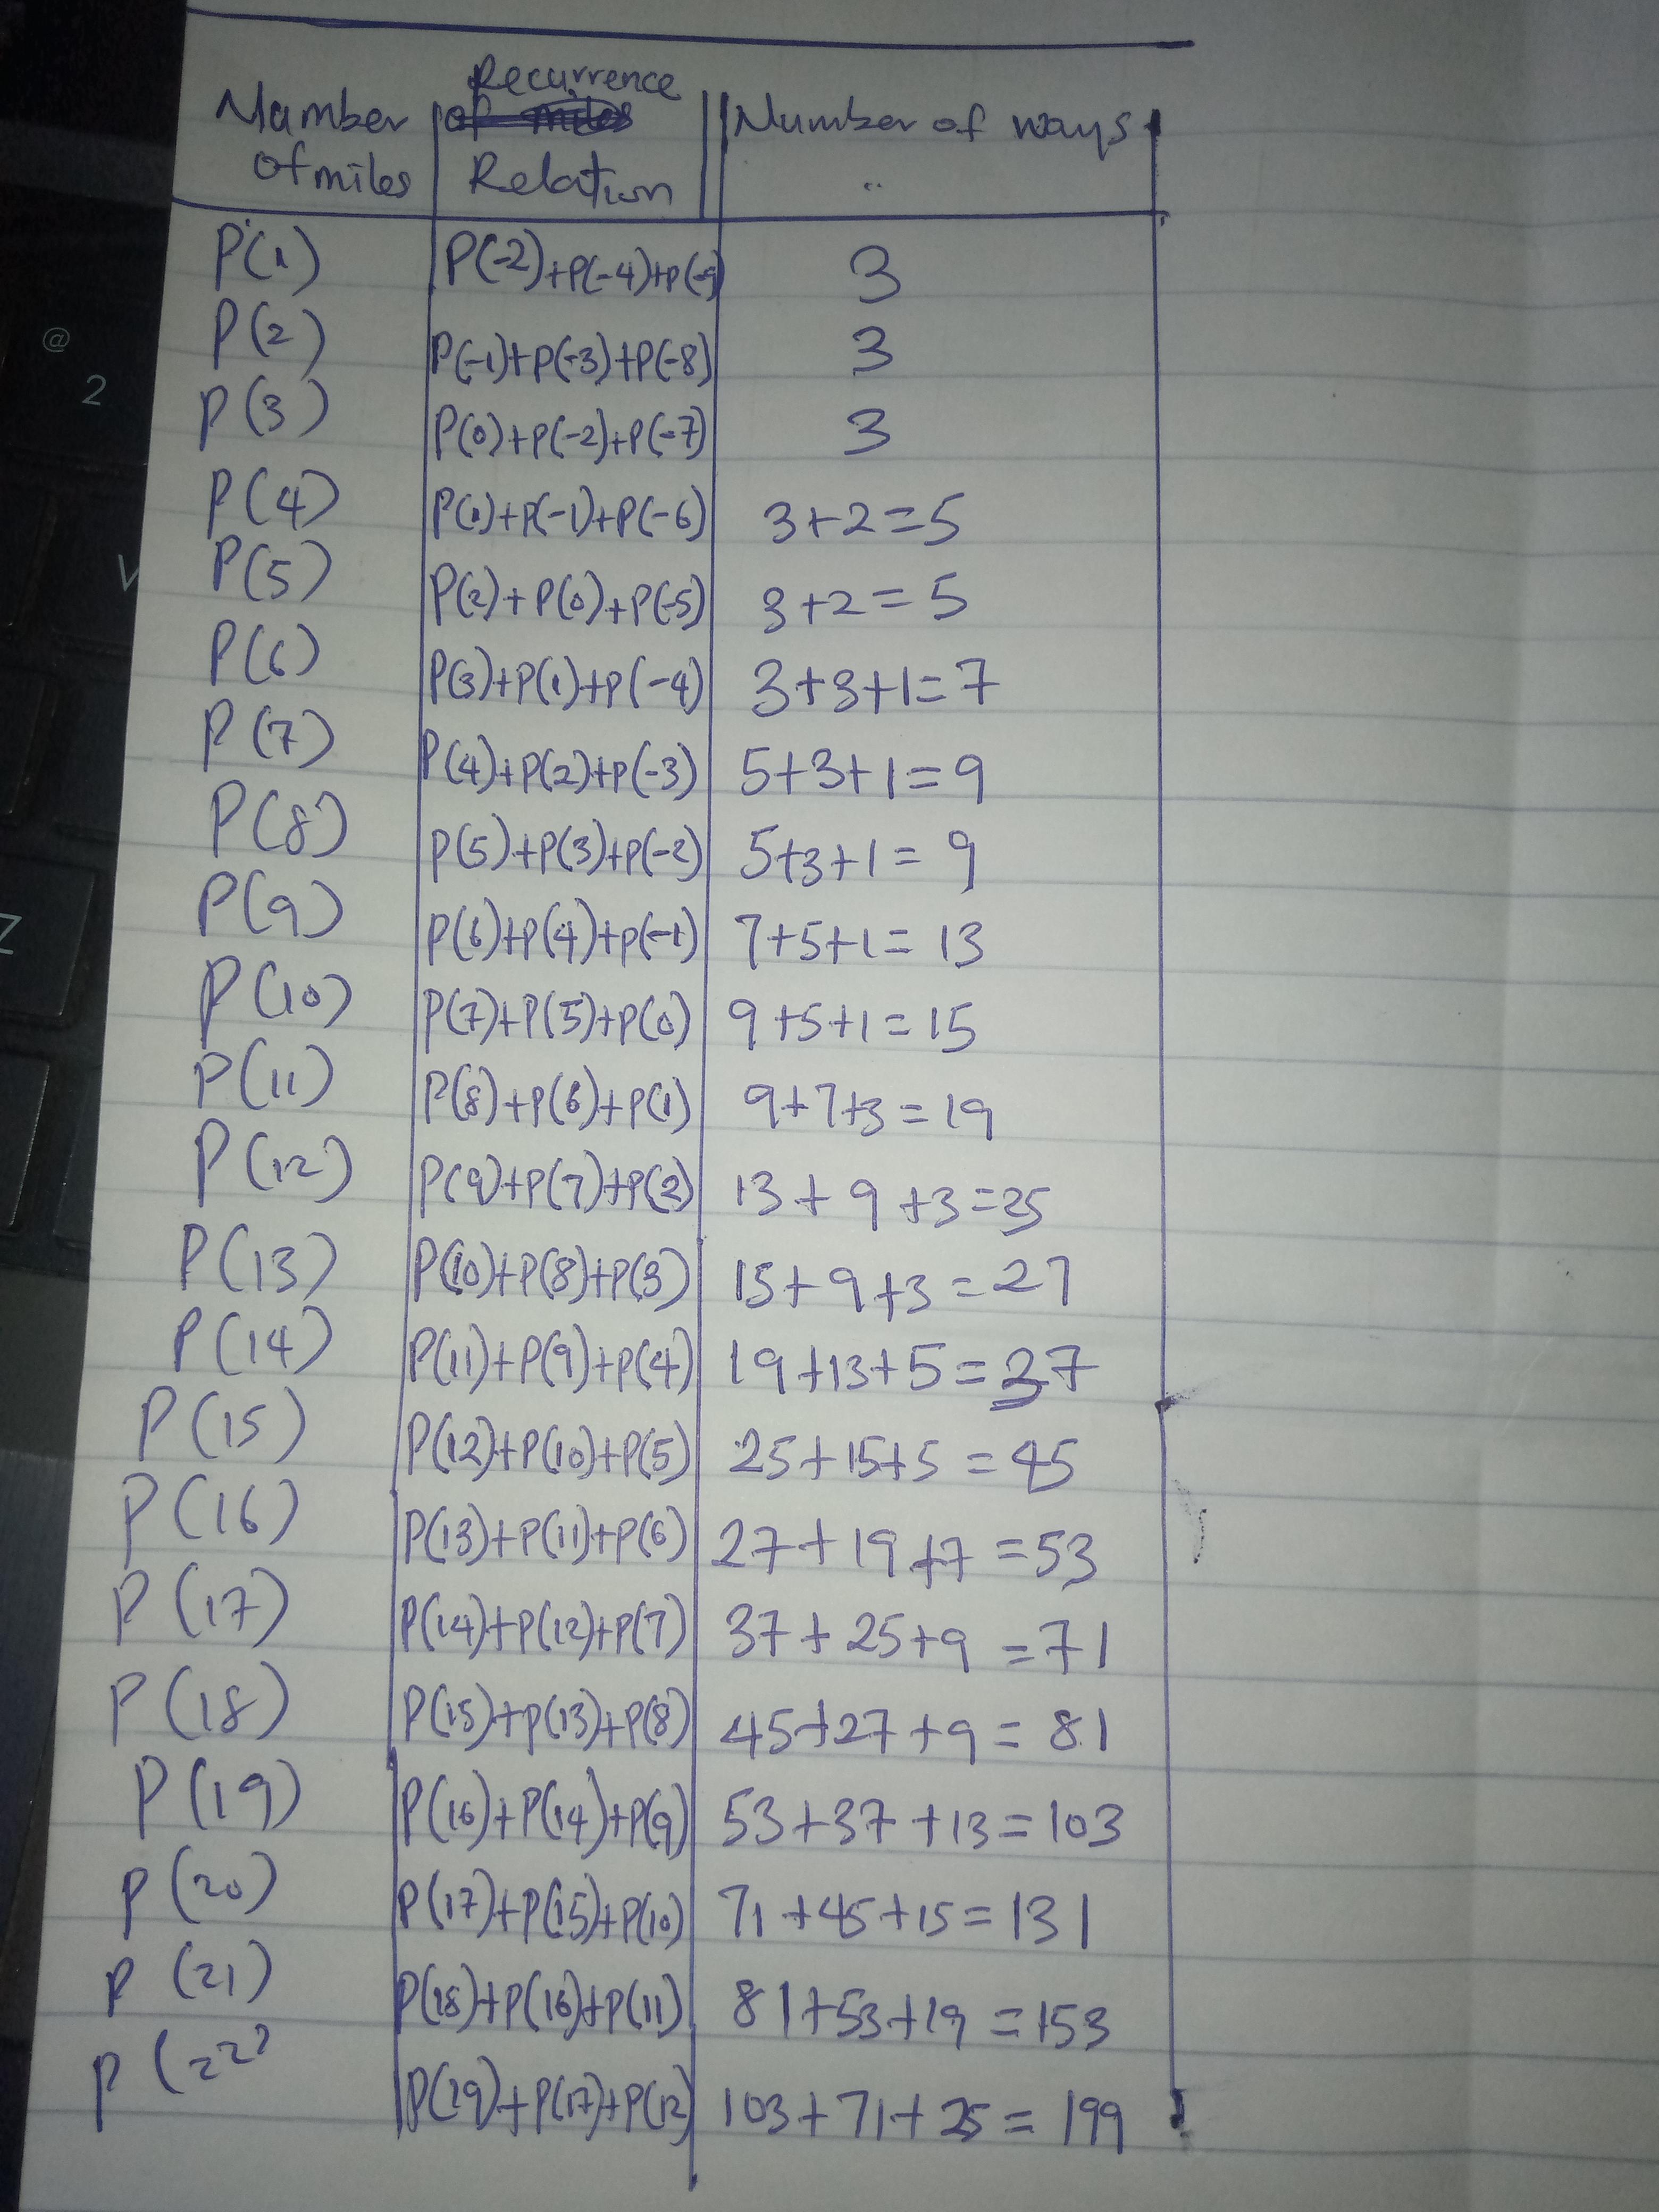 Recurrence
Number of miles Number of ways
of miles Relation
P(1) P(-2)+P(-4)+P(-9) 3
P(2) P(-1)+P(-3)+P(-8) 3
P(3) P(0)+P(-2)+P(-7) 3
P(4) P(1)+P(-1)+P(-6) 3+2=5
P(5) P(2)+P(0)+P(-5) 3+2=5
P(6) P(3)+P(1)+P(-4) 3+3+1=7
P(7) P(4)+P(2)+P(-3) 5+3+1=9
P(8) P(5)+P(3)+P(-2) 5+3+1=9
P(9) P(6)+P(4)+P(-1) 7+5+1=13
P(10) P(7)+P(5)+P(0) 9+5+1=15
P(11) P(8)+P(6)+P(1) 9+7+3=19
P(12) P(9)+P(7)+P(2) 13+9+3=25
P(13) P(10)+P(8)+P(3) 15+9+3=27
P(14) P(11)+P(9)+P(4) 19+13+5=37
P(15) P(12)+P(10)+P(5) 25+15+5=45
P(16) P(13)+P(11)+P(6) 27+19+7=53
P(17) P(14)+P(12)+P(7) 37+25+9=71
P(18) P(15)+P(13)+P(8) 45+27+9=81
P(19) P(16)+P(14)+P(9) 53+37+13=103
P(20) P(17)+P(15)+P(10) 71+45+15=131
P(21) P(18)+P(16)+P(11) 81+53+19=153
P(22) P(19)+P(17)+P(12) 103+71+25=199
@
2
V
Z